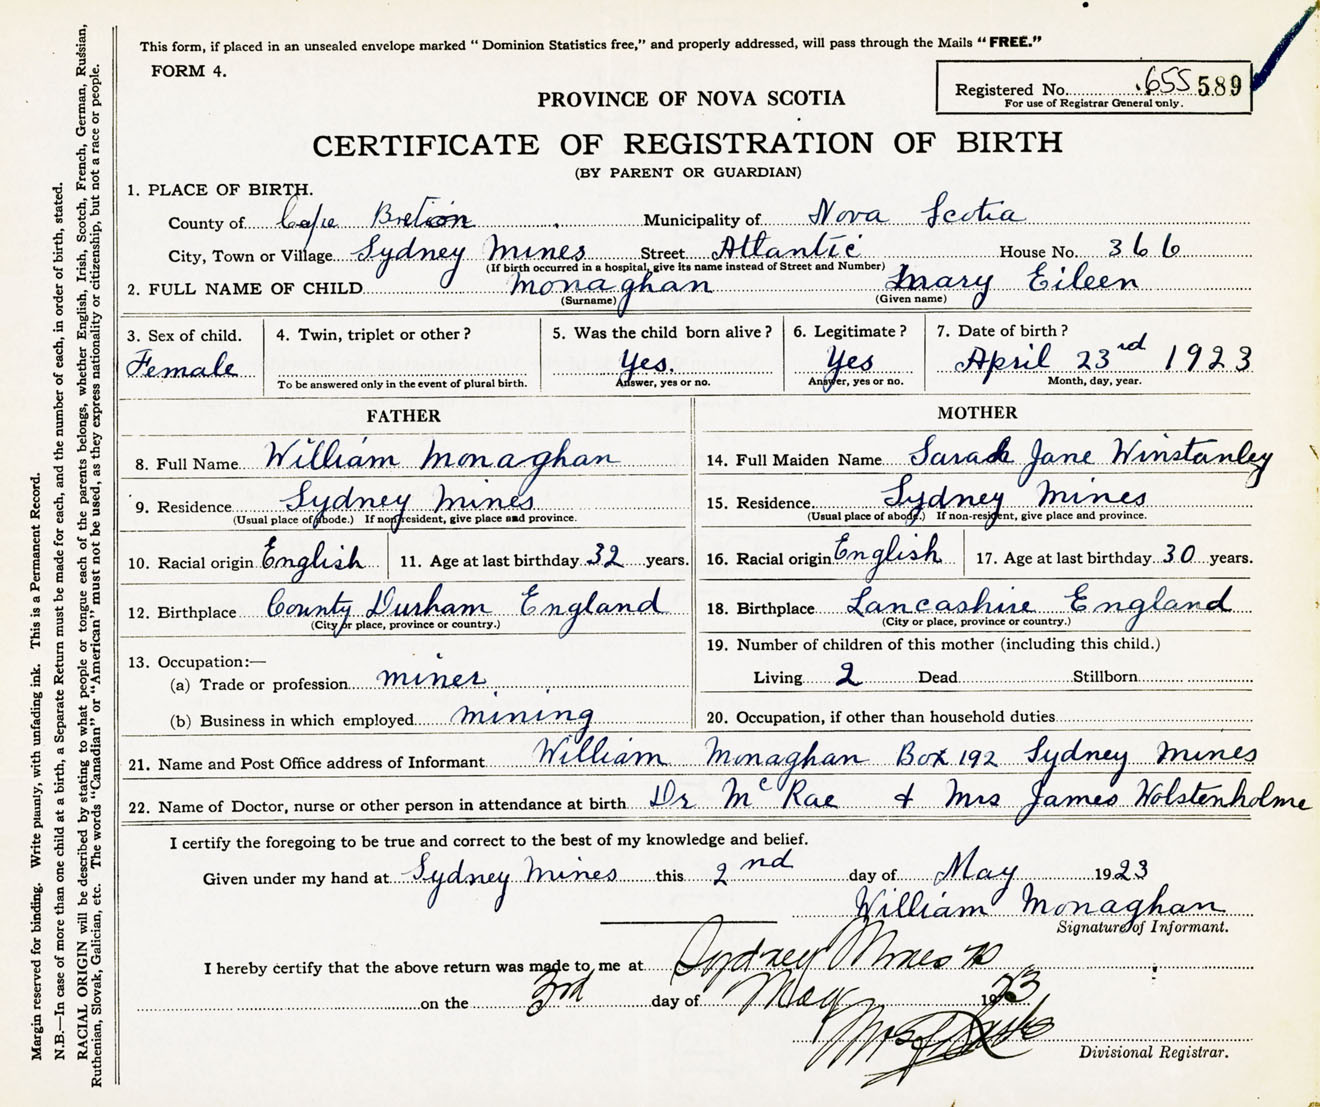 This form, if placed in an unsealed envelope marked "Dominion Statistics free," and properly addressed, will pass through the Mails "FREE."
FORM 4.
Registered No. 655 589
For use of Registrar General only.
PROVINCE OF NOVA SCOTIA
CERTIFICATE OF REGISTRATION OF BIRTH
(BY PARENT OR GUARDIAN)
1. PLACE OF BIRTH.
County of Cape Breton Municipality of Nova Scotia
City, Town or Village Sydney Mines Street Atlantic House No. 366
(If birth occurred in a hospital, give its name instead of Street and Number)
2. FULL NAME OF CHILD Monaghan Mary Eileen
(Surname) (Given name)
3. Sex of child. 4. Twin, triplet or other? 5. Was the child born alive? 6. Legitimate? 7. Date of birth?
Female Yes. Yes April 23rd 1923
To be answered only in the event of plural birth. Answer, yes or no. Answer, yes or no. Month, day, year.
FATHER MOTHER
8. Full Name William Monaghan 14. Full Maiden Name Sarah Jane Winstanley
9. Residence Sydney Mines 15. Residence Sydney Mines
(Usual place of abode.) If non-resident, give place and province. (Usual place of abode.) If non-resident, give place and province.
10. Racial origin English 11. Age at last birthday 32 years. 16. Racial origin English 17. Age at last birthday 30 years.
12. Birthplace County Durham England 18. Birthplace Lancashire England
(City or place, province or country.) (City or place, province or country.)
13. Occupation:— 19. Number of children of this mother (including this child.)
(a) Trade or profession miner Living 2 Dead Stillborn
(b) Business in which employed mining 20. Occupation, if other than household duties
21. Name and Post Office address of Informant William Monaghan Box 192 Sydney Mines
22. Name of Doctor, nurse or other person in attendance at birth Dr McRae + Mrs James Wolstenholme
I certify the foregoing to be true and correct to the best of my knowledge and belief.
Given under my hand at Sydney Mines this 2nd day of May 1923
William Monaghan
Signature of Informant.
I hereby certify that the above return was made to me at Sydney Mines
on the 3rd day of May 1923
Divisional Registrar.
Margin reserved for binding. Write plainly, with unfading ink. This is a Permanent Record.
N.B.—In case of more than one child at a birth, a Separate Return must be made for each, and the number of each, in order of birth, stated.
RACIAL ORIGIN will be described by stating to what people or tongue each of the parents belongs, whether English, Irish, Scotch, French, German, Russian,
Ruthenian, Slovak, Galician, etc. The words "Canadian" or "American" must not be used, as they express nationality or citizenship, but not a race or people.